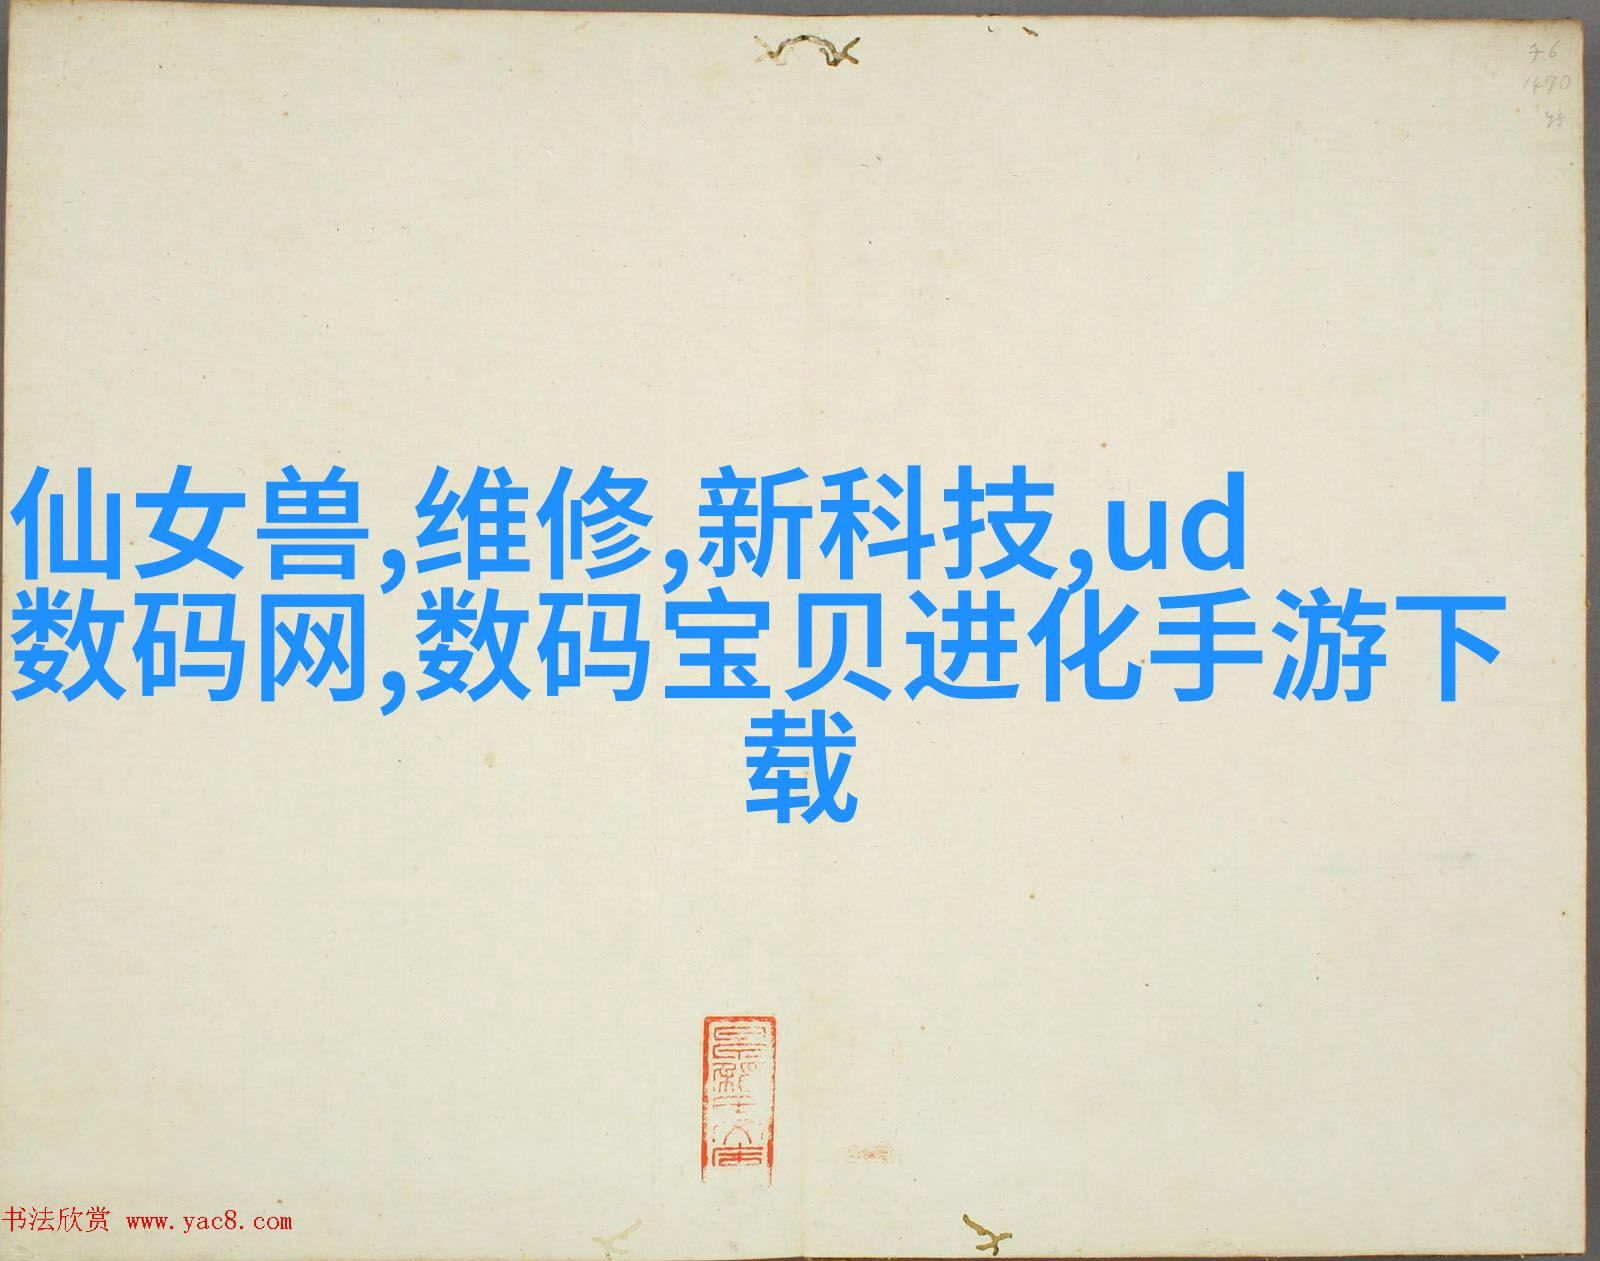 仙女兽,维修,新科技,ud
数码网,数码宝贝进化手游下
载
书法欣赏 www.yac8.com